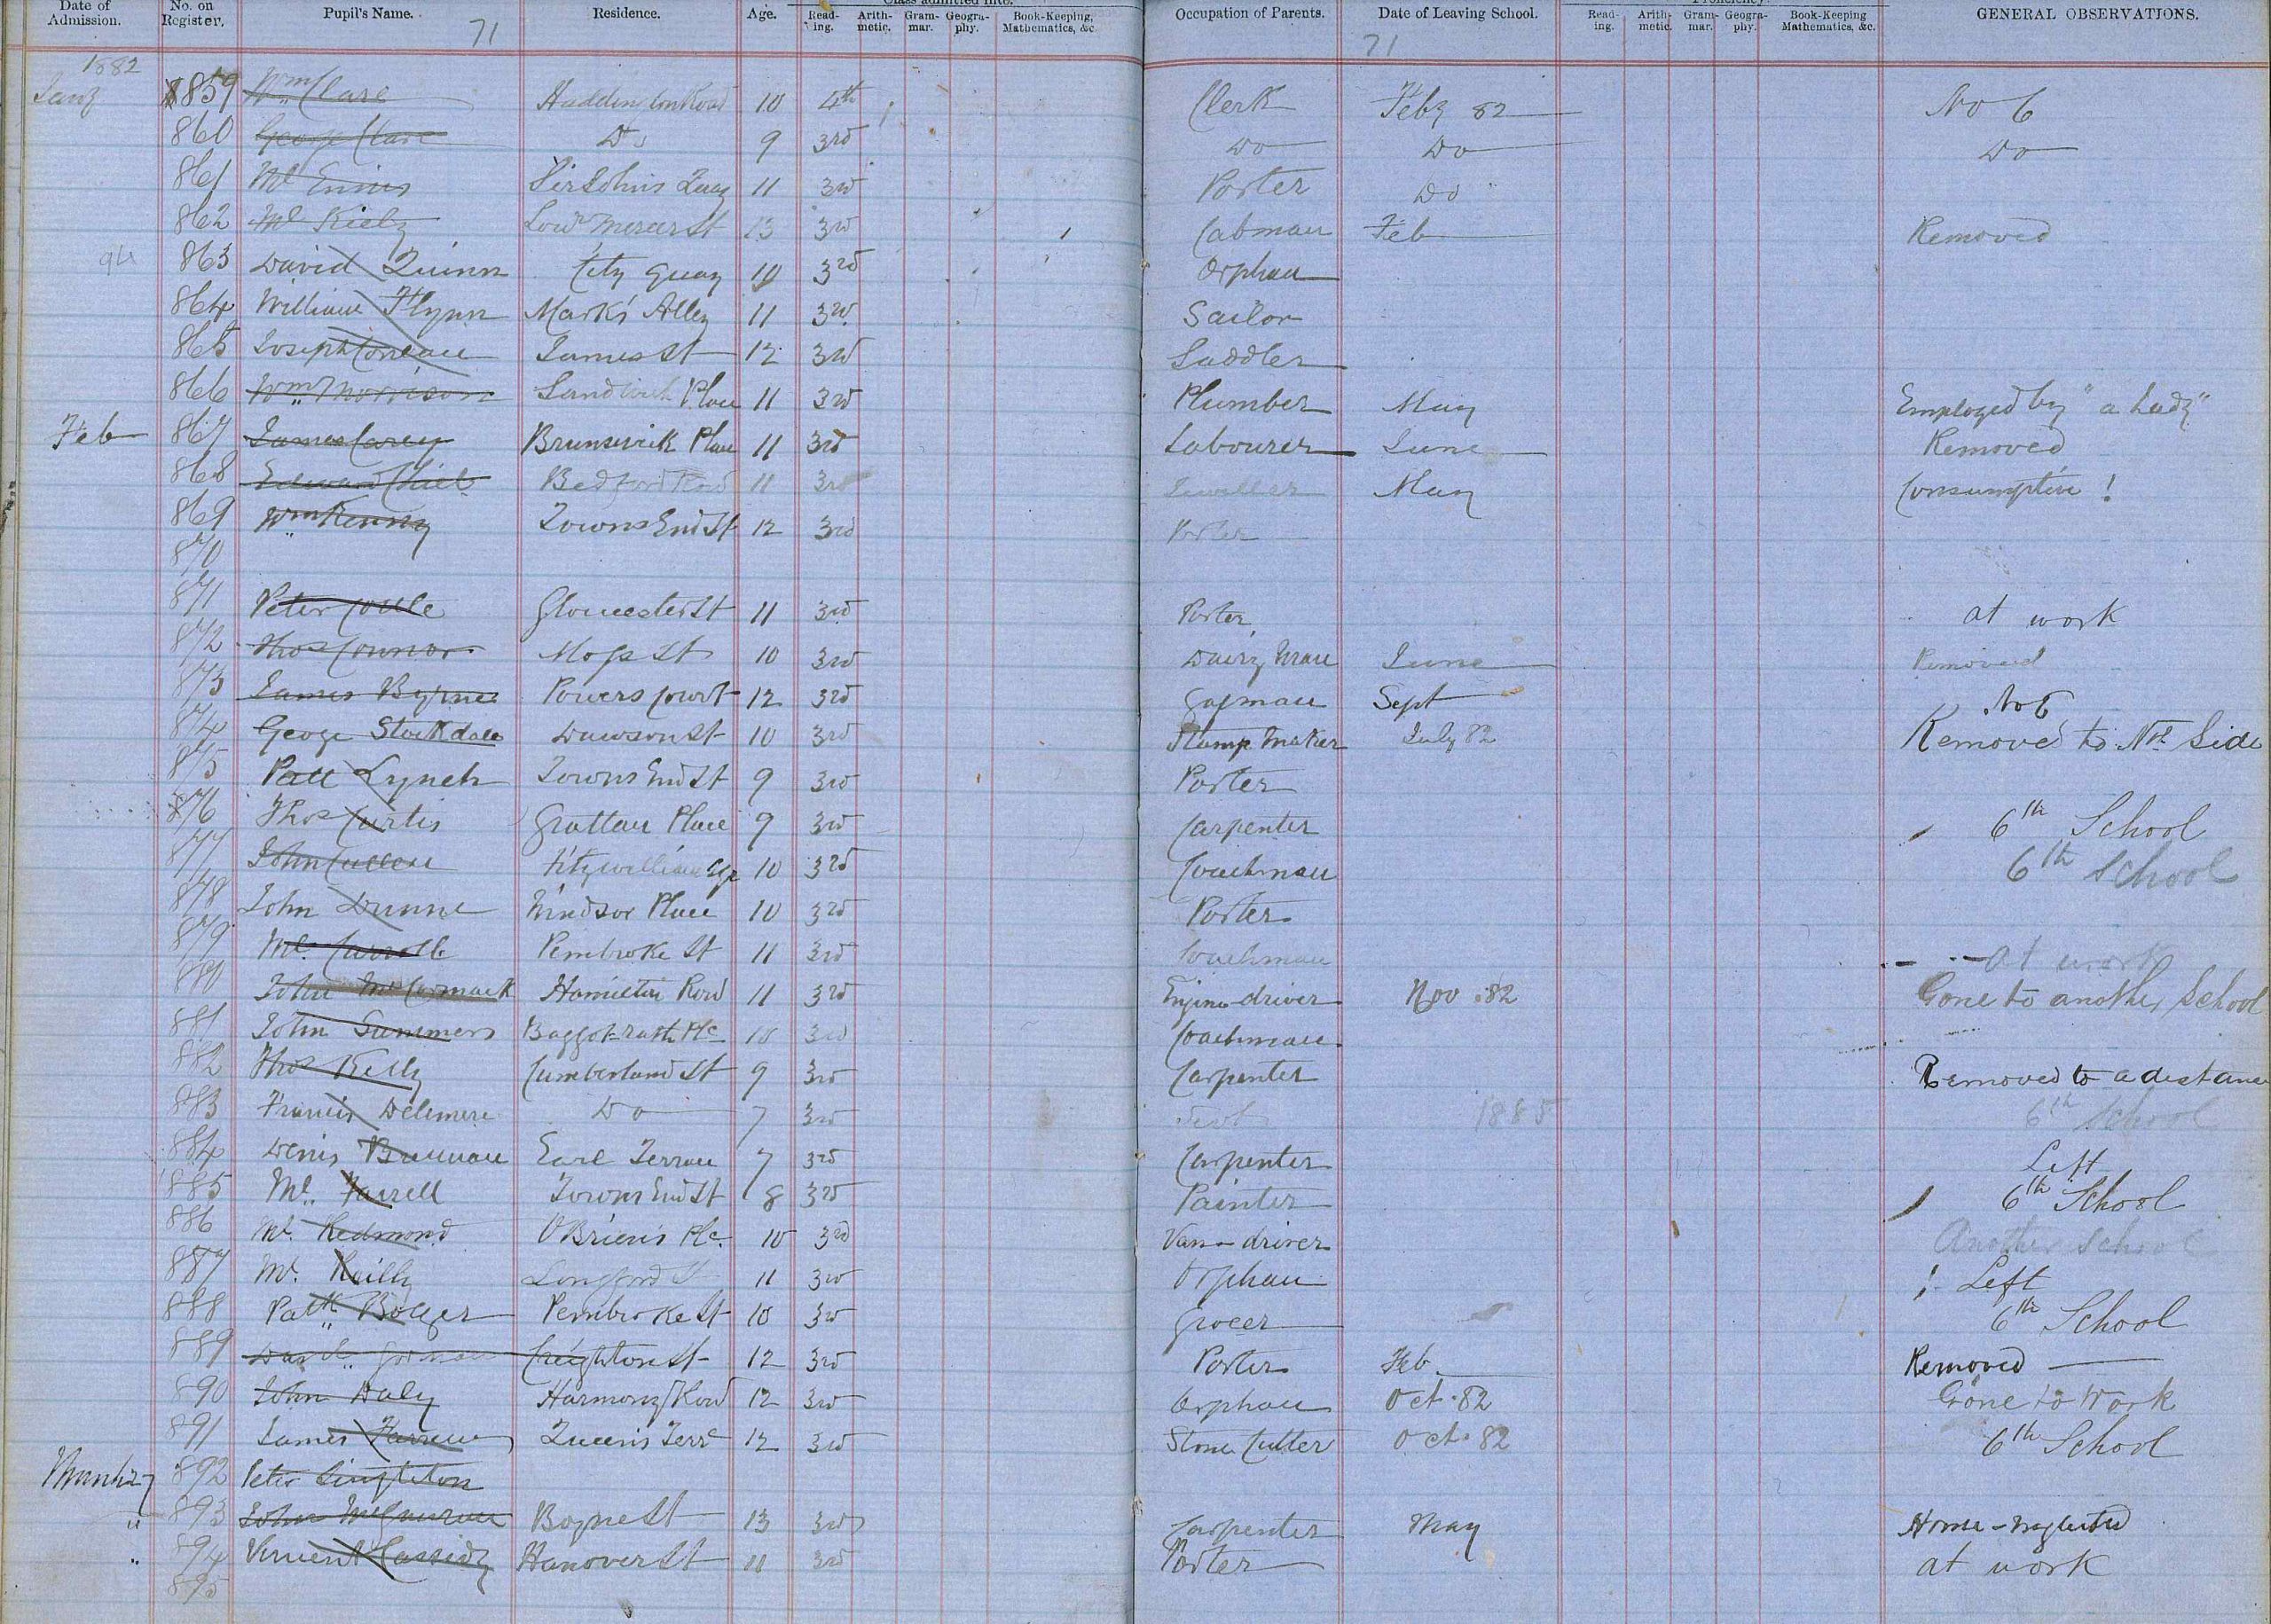 Date of Admission. No. on Register. Pupil's Name. Residence. Age. Class admitted into. Read-ing. Arith-metic. Gram-mar. Geogra-phy. Book-Keeping, Mathematics, &c Occupation of Parents. Date of Leaving School. Proficiency. Read-ing. Arith-metic. Gram-mar. Geogra-phy. Book-Keeping Mathematics, &c. GENERAL OBSERVATIONS.
71 71
1882
Jany 859 Wm Clare Haddington Road 10 4th Clerk Feby 82 No 6
860 George Clare Do 9 3rd Do Do Do
861 Ml Ennis Sir Johns Quay 11 3rd Porter Do
862 Ml Kiely Lowr Mercer St 13 3rd Cabman Feb Removed
863 David Quinn City Quay 10 3rd Orphan
864 William Flynn Mark's Alley 11 3rd Sailor
865 Joseph James St 12 3rd Saddler
866 Wm Morrison Sandwich Place 11 3rd Plumber May Employed by "a Lady"
Feb 867 James Carey Brunswick Place 11 3rd Labourer June Removed
868 Edward Bedford Row 11 3rd Jeweller May Consumptive !
869 Wm Kenny Towns End St 12 3rd Porter
870
871 Peter Coule Gloucester St 11 3rd Porter at work
872 Thos Connor Moss St 10 3rd Dairy Man June Removed
873 James Byrne Powers Court 12 3rd Gasman Sept No 6
874 George Stockdale Dawson St 10 3rd Maker July 82 Removed to Nth Side
875 Patt Lynch Towns End St 9 3rd Porter
876 Thos Curtis Grattan Place 9 3rd Carpenter 6th School
877 John Cullen Fitzwilliam Sqr 10 3rd Coachman 6th School
878 John Dunne Windsor Place 10 3rd Porter
879 Ml. Carroll Pembroke St 11 3rd Coachman at work
880 John McCormack Hamilton Row 11 3rd Engine-driver Nov. 82 Gone to another School
881 John Summers Baggot-rath Plc 10 3rd Coachman
882 Thos Kelly Cumberland St 9 3rd Carpenter Removed to a distance
883 Francis Delemere Do 7 3rd 1885 6th School
884 Denis Brennan Earl Terrace 7 3rd Carpenter Left
885 Ml. Farrell Towns End St 8 3rd Painter 6th School
886 Ml. Redmond O'Brien's Plc. 10 3rd Van-driver Another School
887 Ml. Reilly Longford St 11 3rd Orphan Left
888 Patk Bolger Pembroke St 10 3rd Grocer 6th School
889 Danl. Gorman Creighton St 12 3rd Porter Feb. Removed
890 John Daly Harmony Row 12 3rd Orphan Oct. 82 Gone to Work
891 James Queen's Terr 12 3rd Stone Cutter Oct. 82 6th School
892 Peter Singleton
893 John Boyne St 13 3rd Carpenter May Home-neglected
" 894 Vincent Cassidy Hanover St 11 3rd Porter at work
895